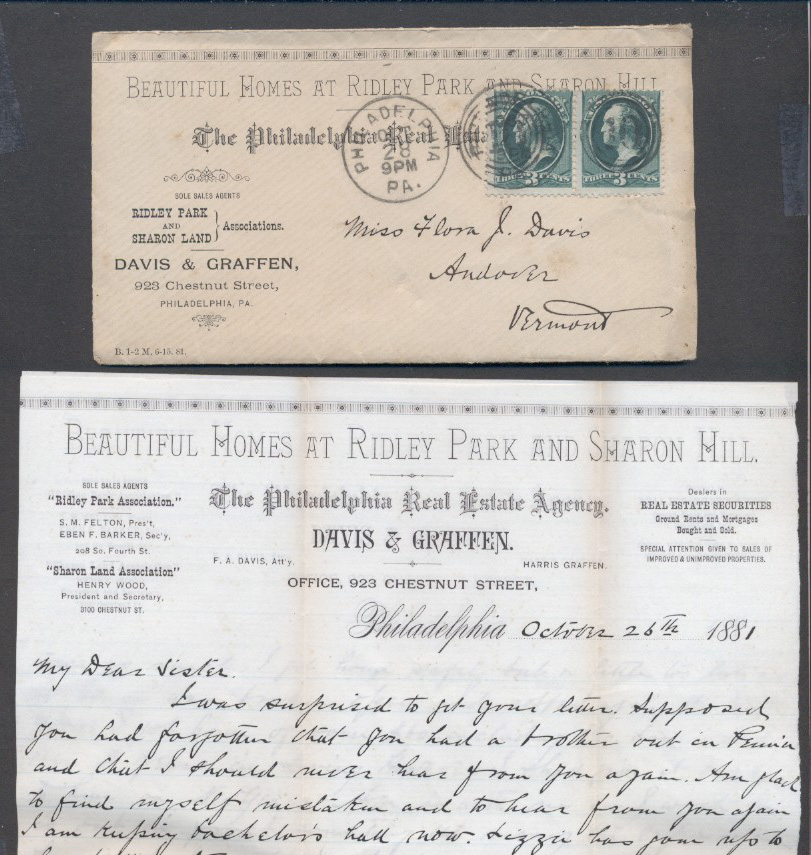 BEAUTIFUL HOMES AT RIDLEY PARK AND SHARON HILL
The Philadelphia Real Esta
SOLE SALES AGENTS
RIDLEY PARK
AND
SHARON LAND
} Associations.
DAVIS & GRAFFEN,
923 Chestnut Street,
PHILADELPHIA, PA.
B. 1-2 M. 6-15. 81.
PHILADELPHIA
OCT
26
9PM
PA.
THREE 3 CENTS
THREE 3 CENTS
Miss Flora J. Davis
Andover
Vermont
BEAUTIFUL HOMES AT RIDLEY PARK AND SHARON HILL.
SOLE SALES AGENTS
"Ridley Park Association."
S. M. FELTON, Pres't,
EBEN F. BARKER, Sec'y,
208 So. Fourth St.
"Sharon Land Association"
HENRY WOOD,
President and Secretary,
3100 CHESTNUT ST.
The Philadelphia Real Estate Agency.
DAVIS & GRAFFEN.
F. A. DAVIS, Att'y.
HARRIS GRAFFEN.
OFFICE, 923 CHESTNUT STREET,
Dealers in
REAL ESTATE SECURITIES
Ground Rents and Mortgages
Bought and Sold.
SPECIAL ATTENTION GIVEN TO SALES OF
IMPROVED & UNIMPROVED PROPERTIES.
Philadelphia October 26th 1881
My Dear Sister.
I was surprised to get your letter. Supposed
you had forgotten that you had a brother out in
and that I should never hear from you again. Am glad
to find myself mistaken and to hear from you again
I am keeping bachelors hall now. Lizzie has gone up to